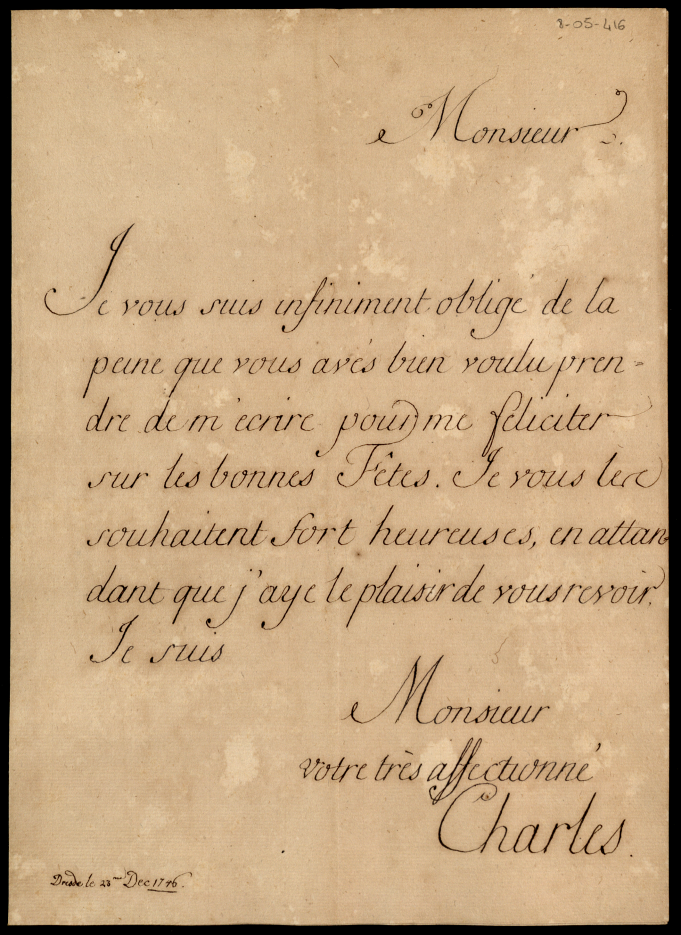 8-05-416
Monsieur
Je vous suis infiniment obligé de la
peine que vous avés bien voulu pren=
dre de m'ecrire pour me feliciter
sur les bonnes Fêtes. Je vous les
souhaitent fort heureuses, en attan
dant que j'aye le plaisir de vous revoir.
Je suis
Monsieur
votre très affectionné
Charles.
Dresde le 23me Dec 1746.